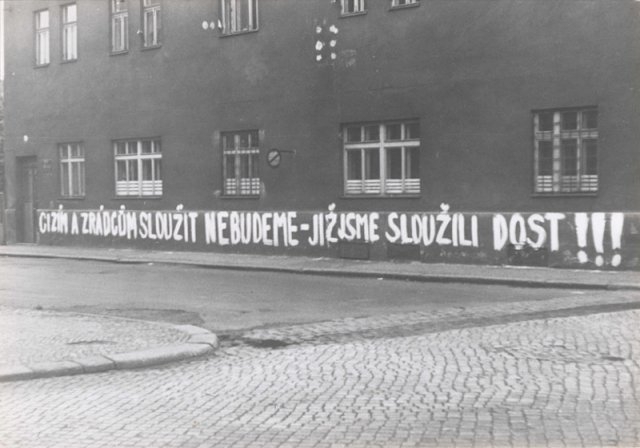 CIZÍM A ZRÁDCŮM SLOUŽIT NEBUDEME - JIŽ JSME SLOUŽILI DOST !!!